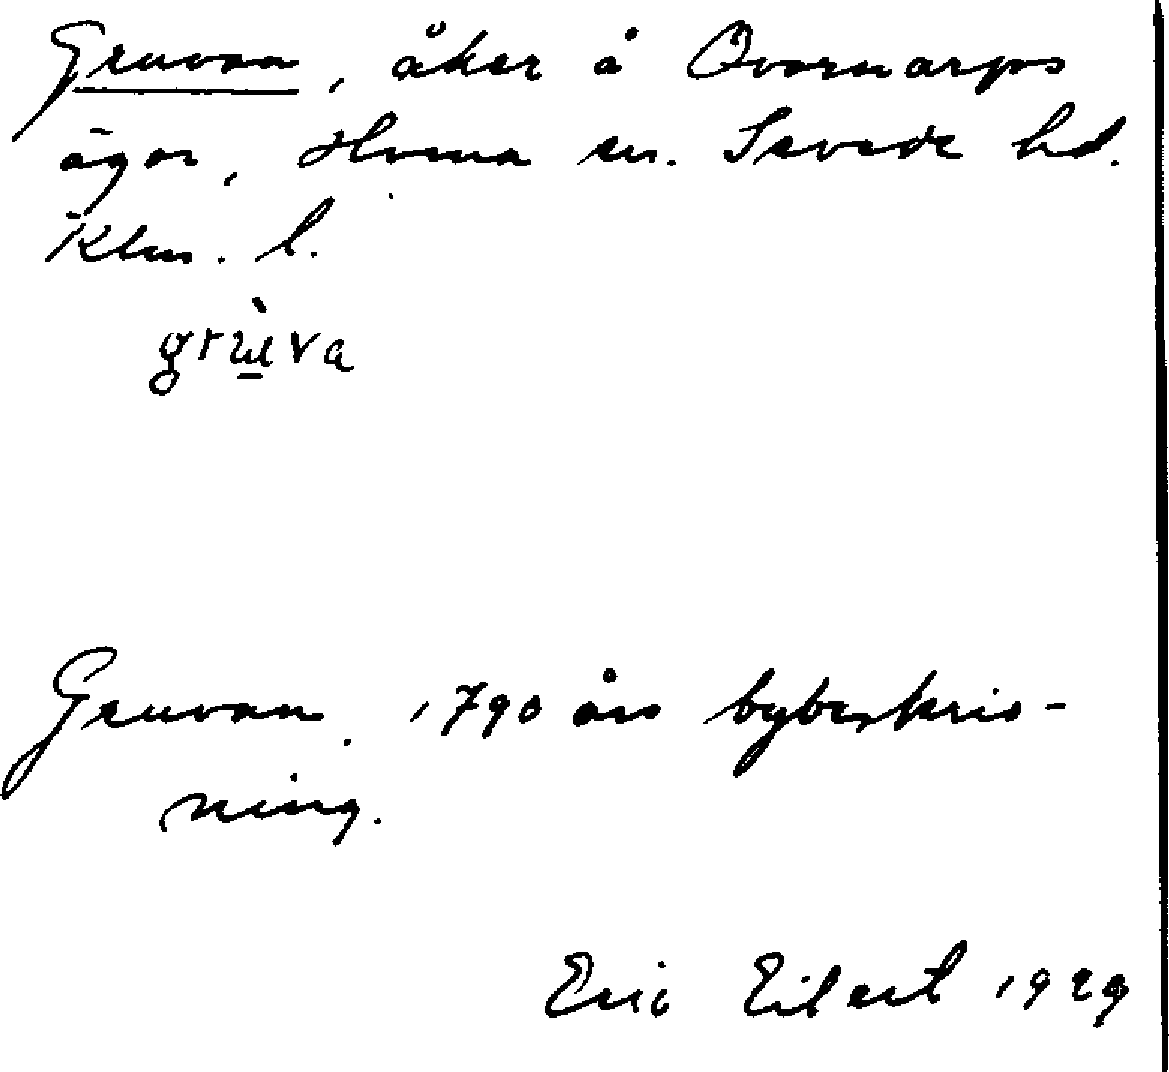 Gruvan, åker å Qvarnarps
ägor, Hvena sn. Sevede hd.
Klm. l.
grùva
Gruvan. 1790 års bybeskriv-
ning.
Eric Eilert 1929